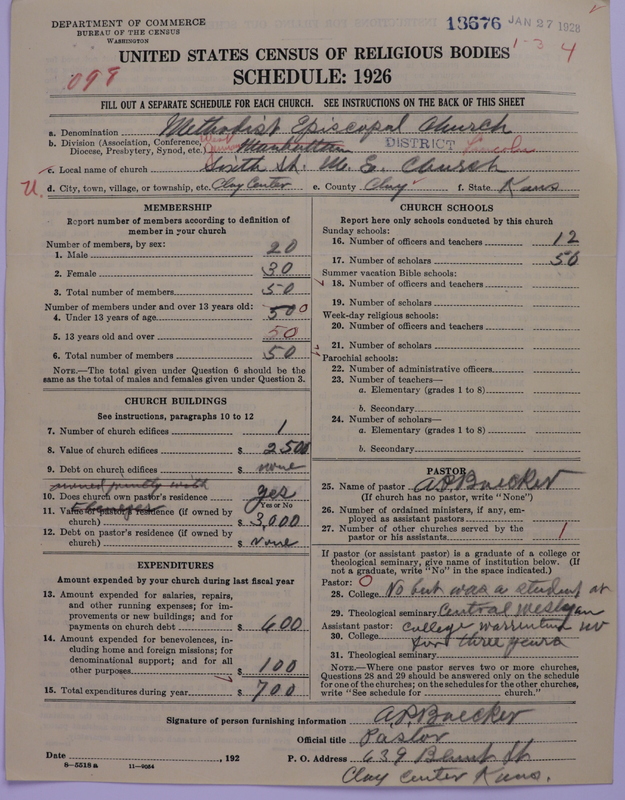 DEPARTMENT OF COMMERCE
BUREAU OF THE CENSUS
WASHINGTON
13676 JAN 27 1928
1-3 4
UNITED STATES CENSUS OF RELIGIOUS BODIES
098
SCHEDULE: 1926
FILL OUT A SEPARATE SCHEDULE FOR EACH CHURCH. SEE INSTRUCTIONS ON THE BACK OF THIS SHEET
a. Denomination Methodist Episcopal Church
b. Division (Association, Conference, Diocese, Presbytery, Synod, etc.) Manhattan DISTRICT Lincoln
c. Local name of church Sixth St. M. E. Church
d. City, town, village, or township, etc. Clay Center e. County Clay f. State Kans
MEMBERSHIP
Report number of members according to definition of member in your church
Number of members, by sex:
1. Male 20
2. Female 30
3. Total number of members 50
Number of members under and over 13 years old:
4. Under 13 years of age 0
5. 13 years old and over 50
6. Total number of members 50
NOTE.—The total given under Question 6 should be the same as the total of males and females given under Question 3.
CHURCH BUILDINGS
See instructions, paragraphs 10 to 12
7. Number of church edifices 1
8. Value of church edifices $ 2500
9. Debt on church edifices $ none
owned jointly with
10. Does church own pastor's residence yes
Yes or No
Ebenezer
11. Value of pastor's residence (if owned by church) $ 3,000
12. Debt on pastor's residence (if owned by church) $ None
EXPENDITURES
Amount expended by your church during last fiscal year
13. Amount expended for salaries, repairs, and other running expenses; for improvements or new buildings; and for payments on church debt $ 600
14. Amount expended for benevolences, including home and foreign missions; for denominational support; and for all other purposes $ 100
15. Total expenditures during year $ 700
CHURCH SCHOOLS
Report here only schools conducted by this church
Sunday schools:
16. Number of officers and teachers 12
17. Number of scholars 50
Summer vacation Bible schools:
18. Number of officers and teachers
19. Number of scholars
Week-day religious schools:
20. Number of officers and teachers
21. Number of scholars
Parochial schools:
22. Number of administrative officers
23. Number of teachers—
a. Elementary (grades 1 to 8)
b. Secondary
24. Number of scholars—
a. Elementary (grades 1 to 8)
b. Secondary
PASTOR
25. Name of pastor
(If church has no pastor, write "None")
26. Number of ordained ministers, if any, employed as assistant pastors
27. Number of other churches served by the pastor or his assistants 1
If pastor (or assistant pastor) is a graduate of a college or theological seminary, give name of institution below. (If not a graduate, write "No" in the space indicated.)
Pastor: O
28. College No but was a student at
29. Theological seminary Central Wesleyan
Assistant pastor: College Warrenton
30. College for three years
31. Theological seminary
NOTE.—Where one pastor serves two or more churches, Questions 28 and 29 should be answered only on the schedule for one of the churches; on the schedules for the other churches, write "See schedule for church."
Signature of person furnishing information
Official title Pastor
Date , 192 P. O. Address 639 St
Clay Center Kans.
8-5518a 11-9034